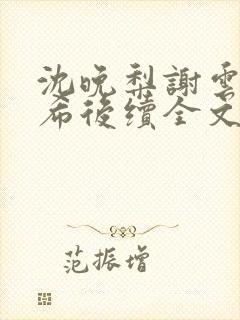 沈晚梨謝雲
希後續全文
范振增